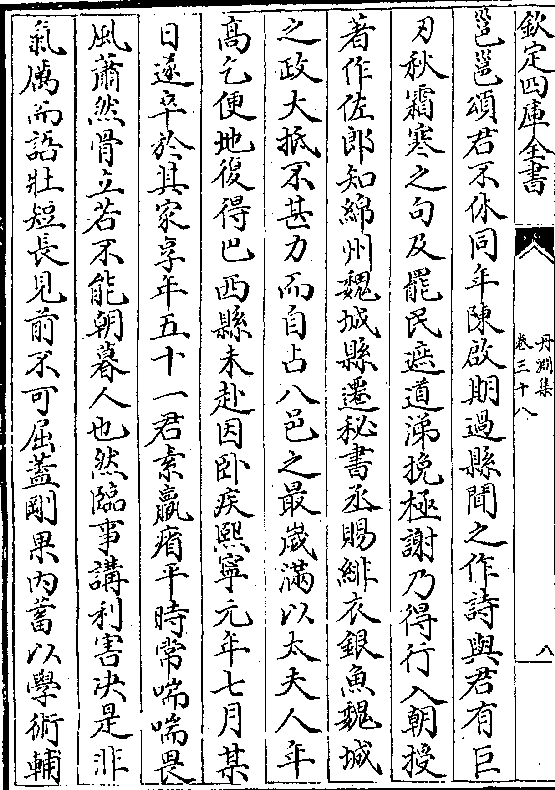 欽定四庫全書
丹淵集
卷三十八
八
邕邕頌君不休同年陳啟期過縣聞之作詩與君有巨
刃秋霜寒之句及罷民遮道涕挽極謝乃得行入朝授
著作佐郎知綿州魏城縣遷秘書丞賜緋衣銀魚魏城
之政大抵不甚力而自占八邑之最嵗滿以太夫人年
髙乞便地復得巴西縣未赴因卧疾熙寧元年七月某
日遂卒於其家享年五十一君素羸瘠平時常喘喘畏
風蕭然骨立若不能朝暮人也然臨事講利害决是非
氣厲而語壯短長見前不可屈蓋剛果内蓄以學術輔